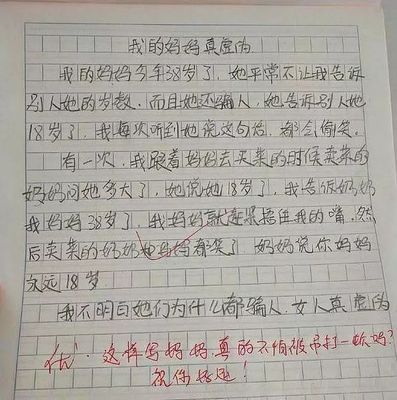 我的妈妈真虚伪
我的妈妈今年38岁了，她平常不让我告诉
别人她的岁数，而且她还骗人，她告诉别人她
18岁了，我每次听到她说这句话，都会偷笑。
有一次，我跟着妈妈去买菜的时候卖菜的
奶奶问她多大了，她说她18岁了，我告诉奶奶
我妈妈38岁了，我妈妈就赶紧捂住我的嘴，然
后卖菜的奶奶都笑了 妈妈说你妈妈
永远18岁
我不明白她们为什么都骗人，女人真虚伪
优·这样写妈妈，真的不怕被吊打一顿吗？
祝你好运！